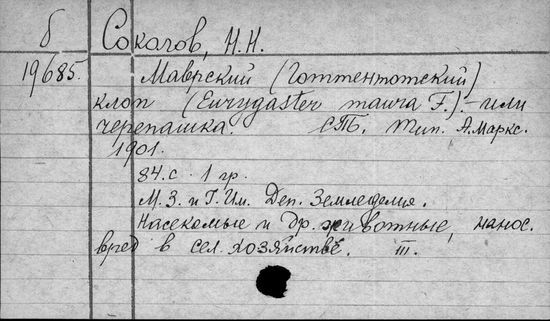 б Сокачов, Н.Н.
19685. Маврский (Готтентотский)
клоп (Eurygaster maura F.) – или
черепашка. СПб. Тип. А. Маркс.
1901.
84 с. 1 гр.
М. З. и Г. Им. Деп. Земледелия.
Насекомые и др. животные, нанос.
вред в сел. хозяйстве. III.